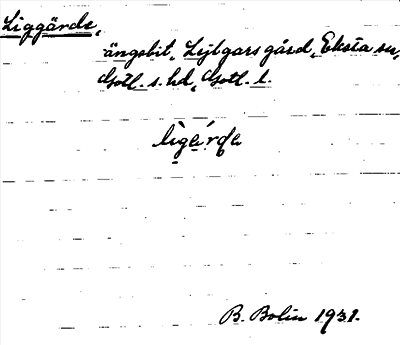 Liggärde,
ängsbit, Lejlgarsgård, Eksta sn,
Gotl. s. hd, Gotl. l.
lìgárda
B. Bolin 1931.